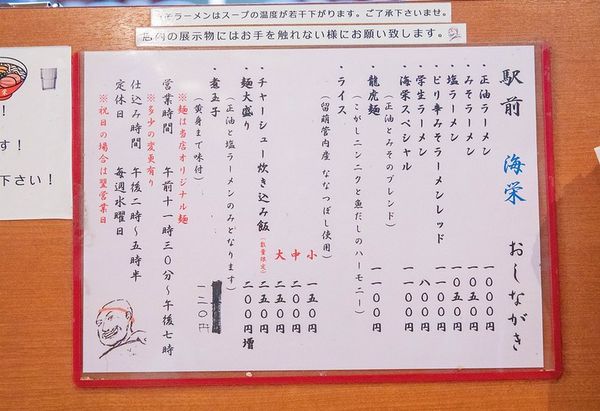 そラーメンはスープの温度が若干下がります。ご了承下さいませ。
店内の展示物にはお手を触れない様にお願い致します。
駅前 海栄 おしながき
・正油ラーメン 一〇〇〇円
・みそラーメン 一〇五〇円
・塩ラーメン 一〇〇〇円
・ピリ辛みそラーメンレッド 一〇五〇円
・学生ラーメン 八〇〇円
・海栄スペシャル 一一〇〇円
（正油とみそのブレンド）
・龍虎麺 一一〇〇円
（こがしニンニクと魚だしのハーモニー）
・ライス 小 一五〇円
（留萌管内産 ななつぼし使用） 中 二〇〇円
大 二五〇円
・チャーシュー炊き込み飯（数量限定） 二五〇円
・麺大盛り 二〇〇円増
（正油と塩ラーメンのみとなります）
・煮玉子 一二〇円
（黄身まで味付）
※麺は当店オリジナル麺
営業時間 午前十一時三〇分～午後七時
※多少の変更有り
仕込み時間 午後二時～五時半
定休日 毎週水曜日
※祝日の場合は翌営業日
！
す！
下さい！